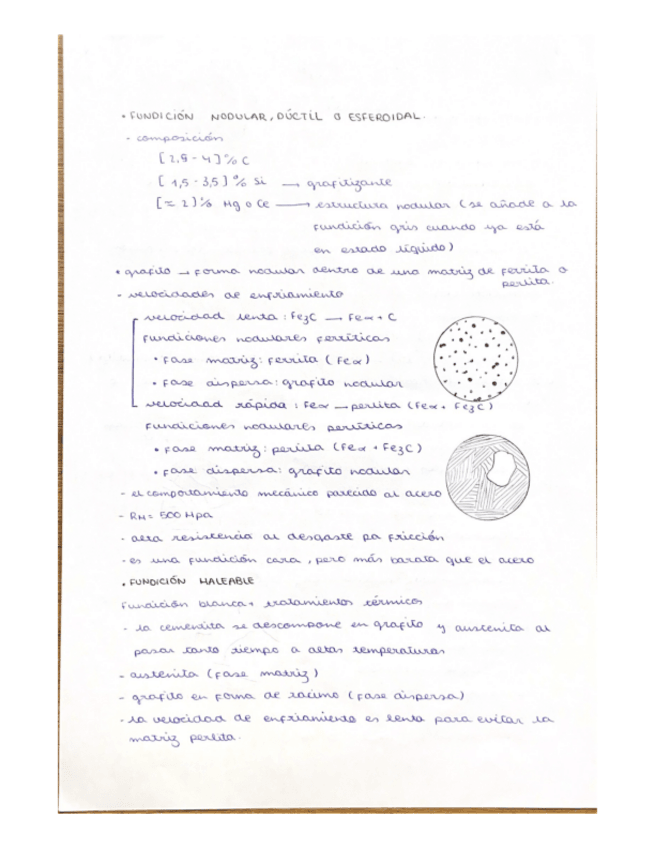 • FUNDICIÓN NODULAR, DÚCTIL O ESFEROIDAL.
- composición
[2,8 - 4] % C
[1,5 - 3,5] % Si → grafitizante
[≈ 2] % Mg o Ce → estructura nodular (se añade a la
fundición gris cuando ya está
en estado líquido)
• grafito → forma nodular dentro de una matriz de ferrita o
perlita.
- velocidades de enfriamiento
velocidad lenta : Fe3C → Feα + C
fundiciones nodulares ferríticas
• fase matriz: ferrita (Feα)
• fase dispersa: grafito nodular
velocidad rápida : Feα → perlita (Feα + Fe3C)
fundiciones nodulares perlíticas
• fase matriz: perlita (Feα + Fe3C)
• fase dispersa: grafito nodular
- el comportamiento mecánico parecido al acero
- RM = 500 Mpa
- alta resistencia al desgaste pa fricción
- es una fundición cara, pero más barata que el acero
• FUNDICIÓN MALEABLE
Fundición blanca + tratamientos térmicos
- la cementita se descompone en grafito y austenita al
pasar tanto tiempo a altas temperaturas
- austenita (fase matriz)
- grafito en forma de racimo (fase dispersa)
- la velocidad de enfriamiento es lenta para evitar la
matriz perlita.